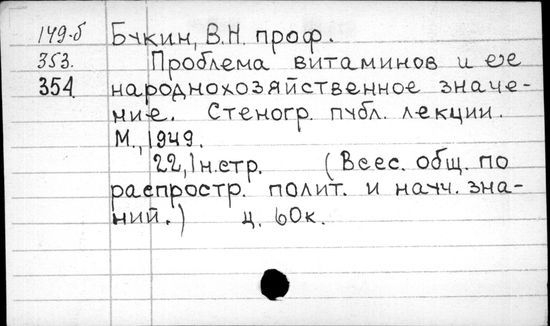 149-б Букин, В.Н. проф.
353. Проблема витаминов и ее
354 народнохозяйственное значе-
ние. Стеногр. публ. лекции.
М., 1949.
22, 1 н.стр. (Всес. общ. по
распростр. полит. и науч. зна-
ний.) ц. 60к.